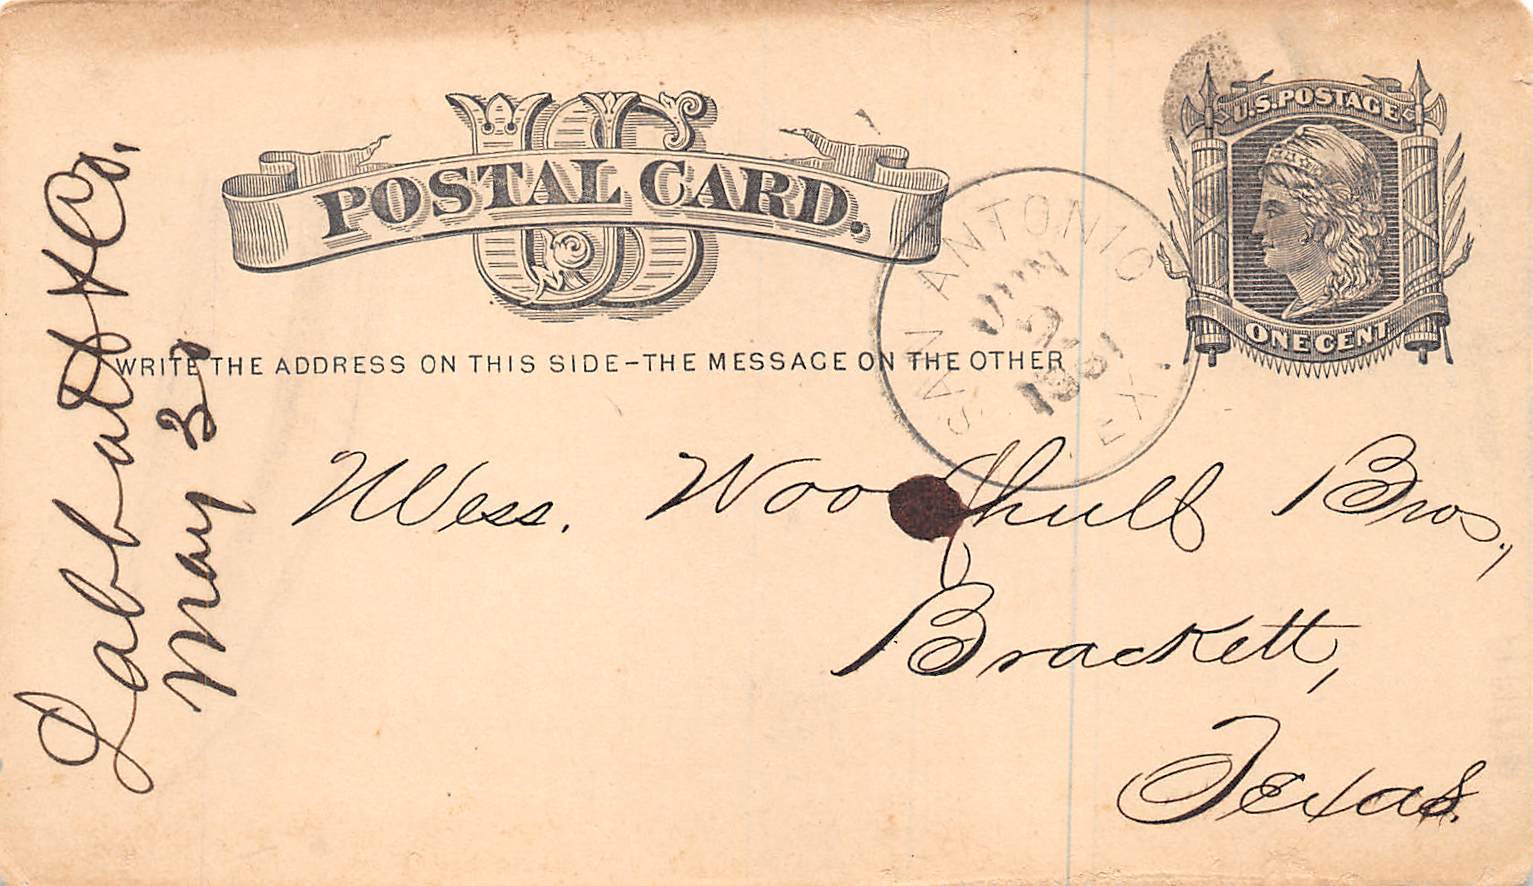 US
POSTAL CARD.
U.S. POSTAGE
ONE CENT
WRITE THE ADDRESS ON THIS SIDE-THE MESSAGE ON THE OTHER
SAN ANTONIO TEX.
JUN
Mess. Woodhull Bros.,
Brackett,
Texas.
Labbatt & Co.
May 3